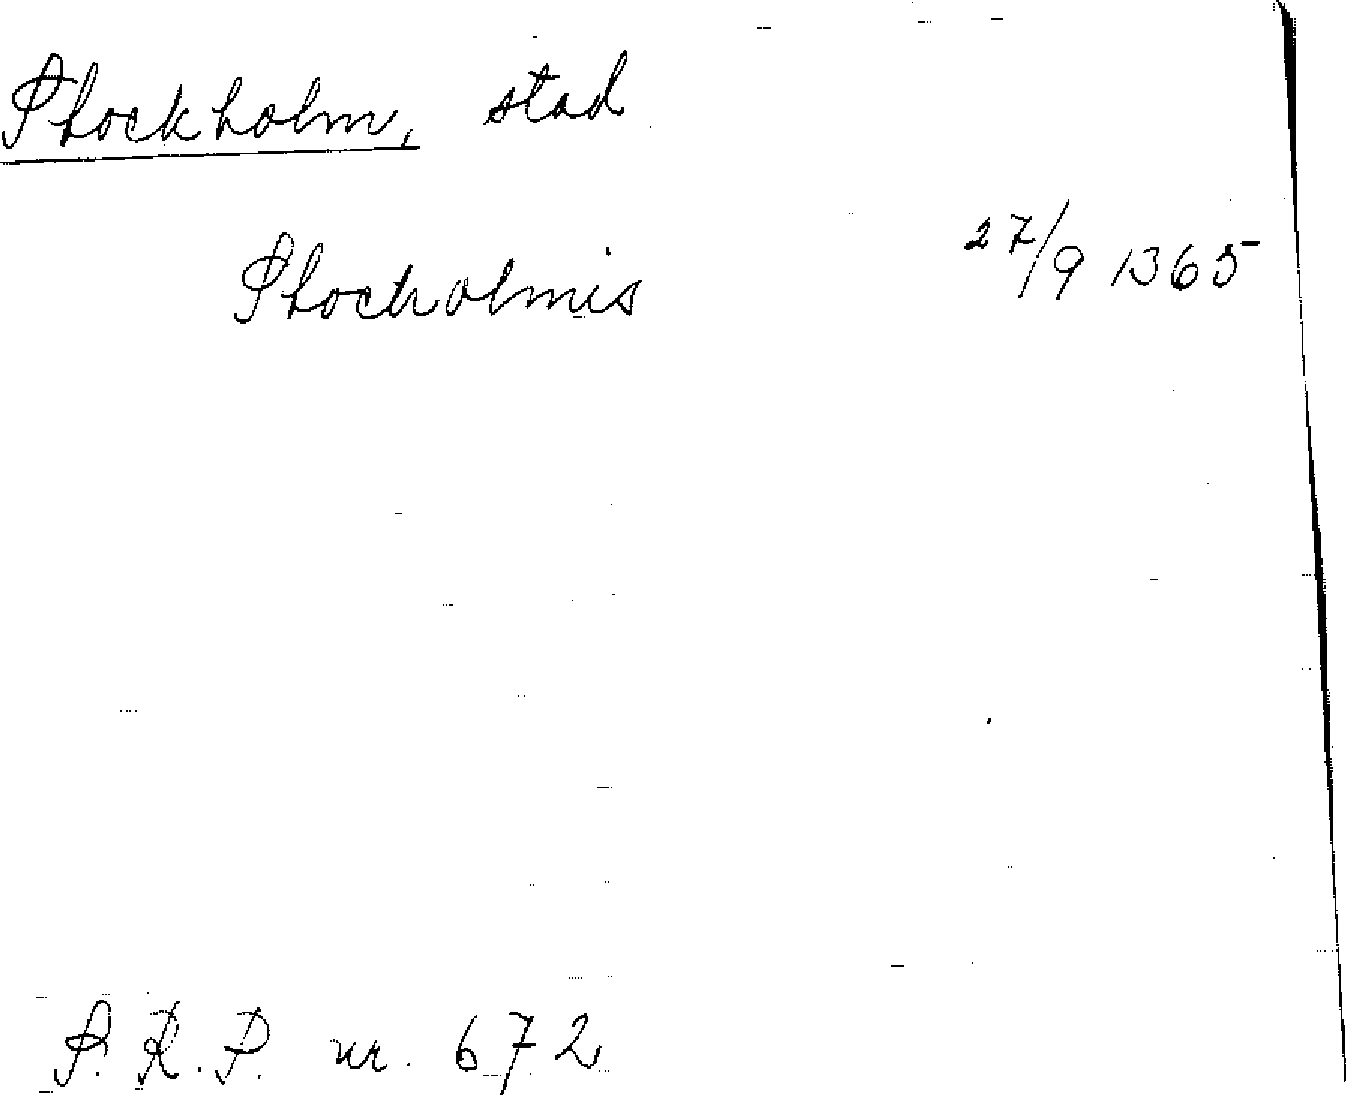 Stockholm, stad
Stocholmis 27/9 1365
S.R.P. nr. 672